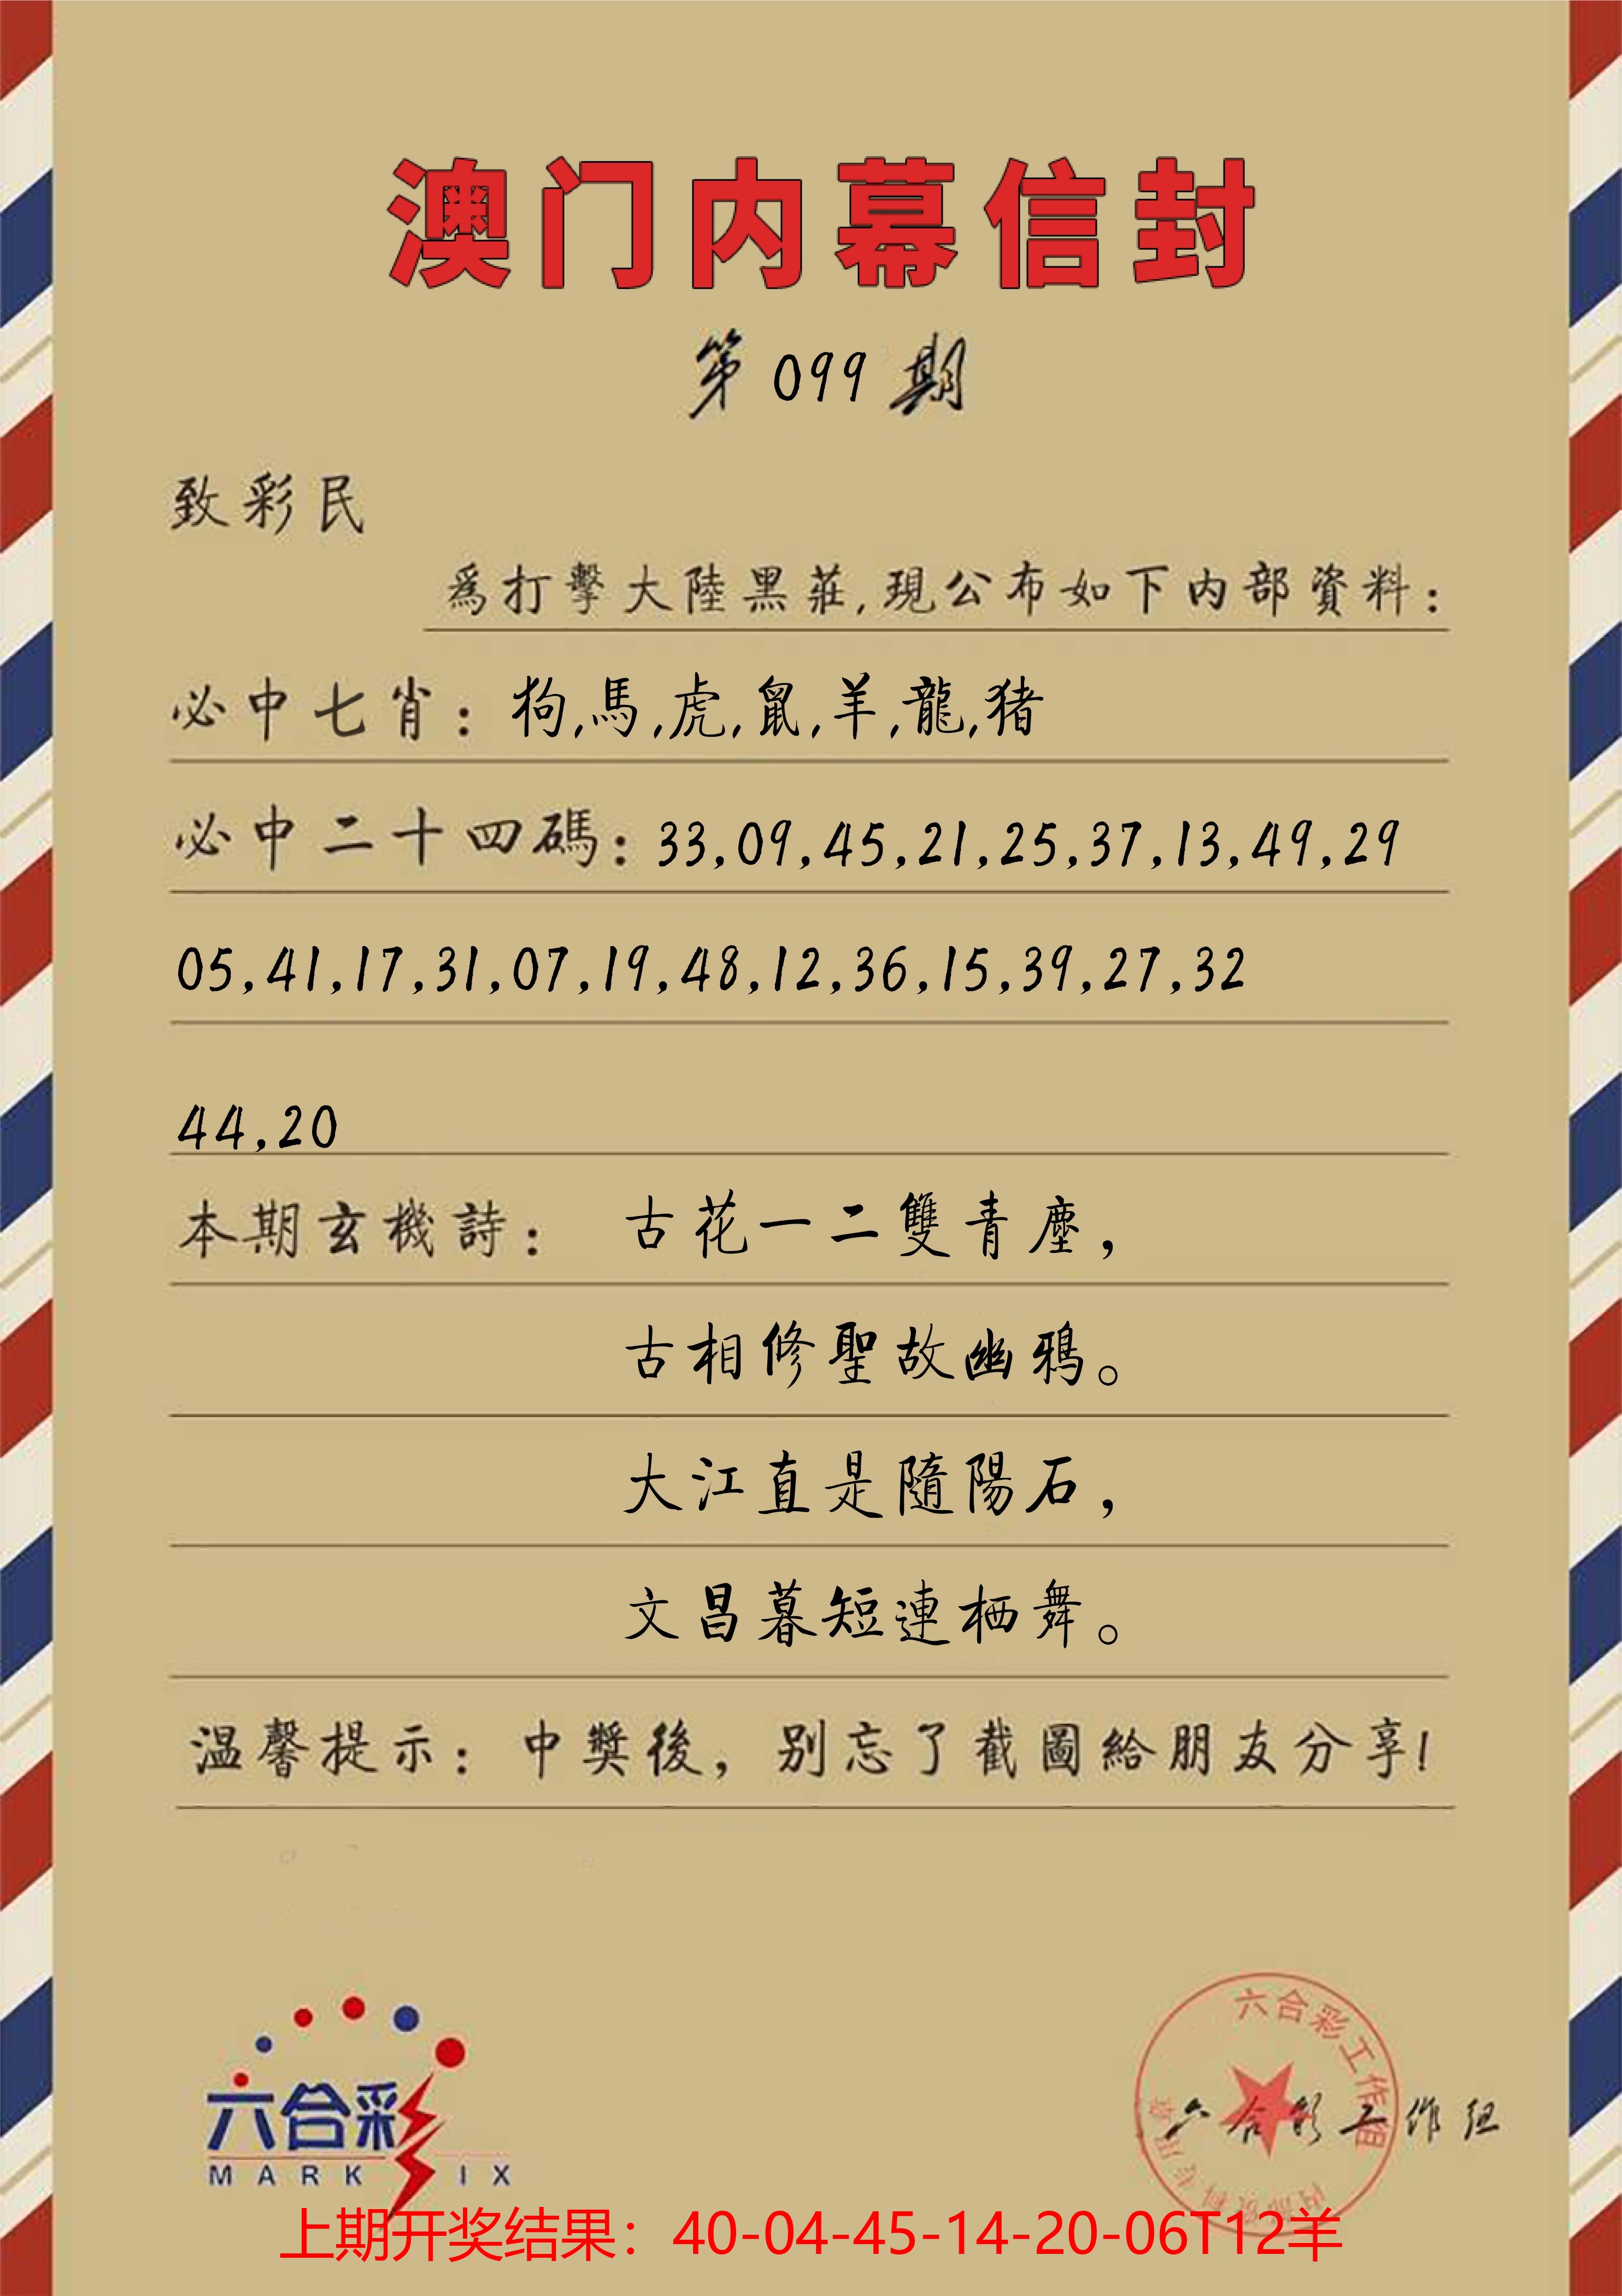 澳门内幕信封
第 099 期
致彩民
爲打擊大陸黑莊,現公布如下内部資料:
必中七肖: 狗,馬,虎,鼠,羊,龍,猪
必中二十四碼: 33,09,45,21,25,37,13,49,29
05,41,17,31,07,19,48,12,36,15,39,27,32
44,20
本期玄機詩: 古花一二雙青塵,
古相修聖故幽鴉。
大江直是隨陽石,
文昌暮短連栖舞。
温馨提示: 中獎後, 别忘了截圖給朋友分享!
六合彩
MARK SIX
六合彩工作组
六合彩工作组
内部资料专用章
上期开奖结果：40-04-45-14-20-06T12羊